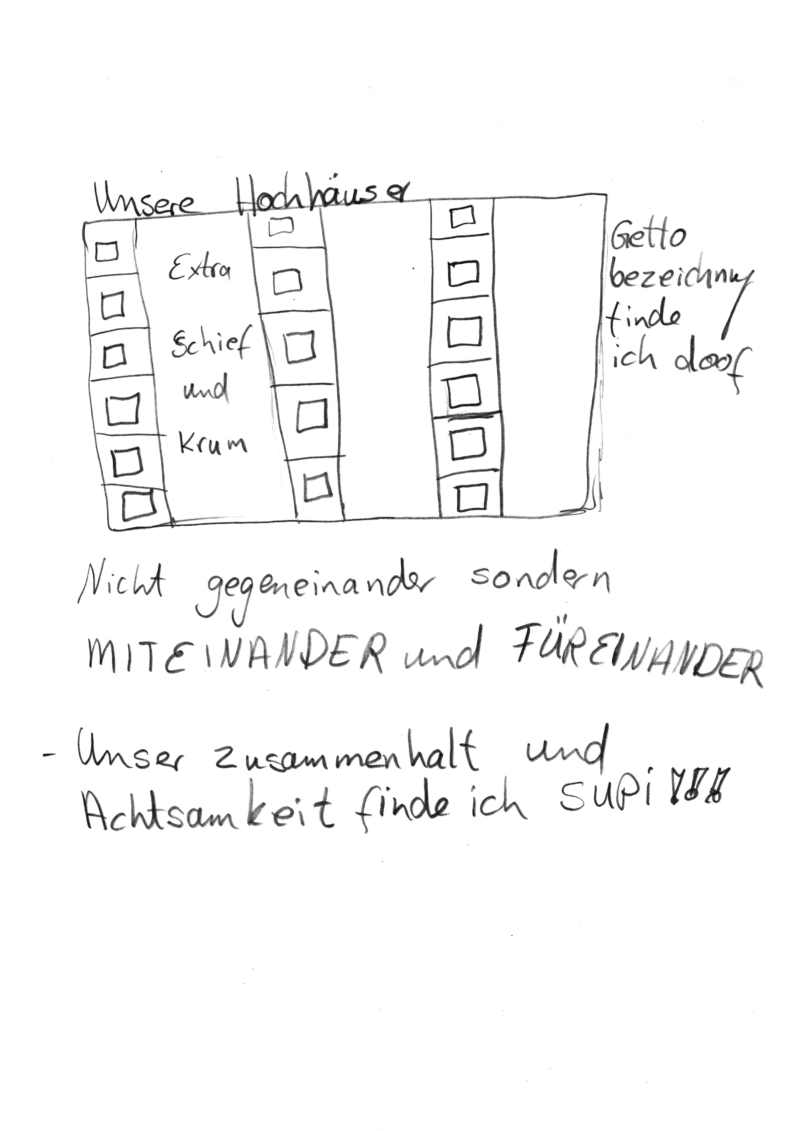 Unsere Hochhäuser
Extra
Schief
und
Krum
Getto
bezeichnung
finde
ich doof
Nicht gegeneinander sondern
MITEINANDER und FÜREINANDER
- Unser zusammenhalt und
Achtsamkeit finde ich SUPi!!!